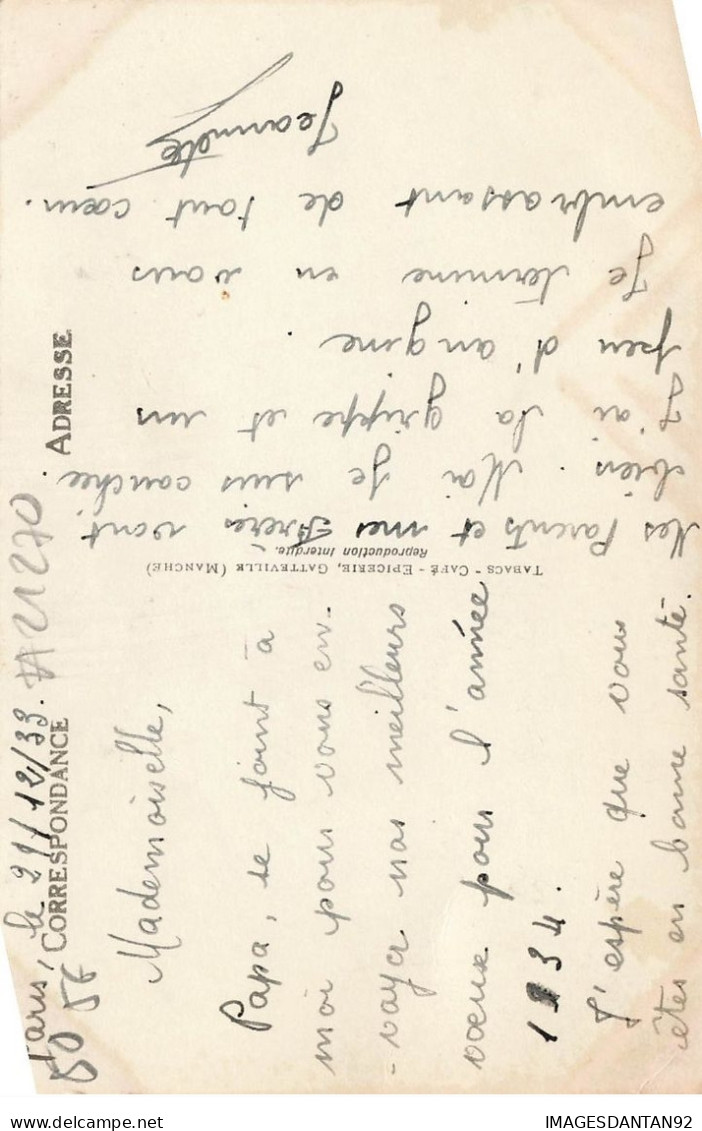 Paris, le 29/12/33.
#21270
50 5E
CORRESPONDANCE
ADRESSE
Mademoiselle,
Papa, se joint à
moi pour vous en-
-voyer nos meilleurs
vœux pour l'année
1934.
J'espère que vous
êtes en bonne santé.
TABACS - CAFÉ - EPICERIE, GATTEVILLE (MANCHE)
Reproduction Interdite.
Mes Parents et mes Frères vont
bien. Moi je suis couchée.
J'ai la grippe et un
peu d'angine.
Je termine en vous
embrassant de tout cœur.
Jeannette
IMAGESDANTAN92